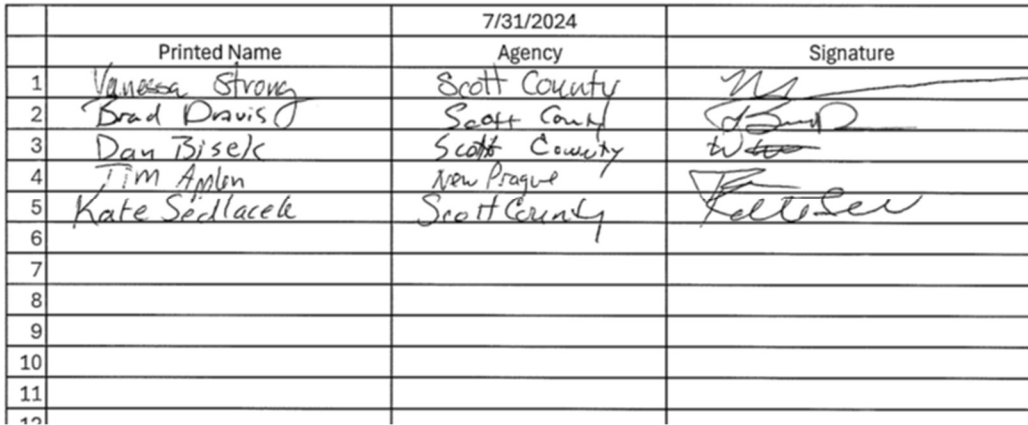 7/31/2024
Printed Name Agency Signature
1 Vanessa Strong Scott County
2 Brad Davis Scott County
3 Dan Bisek Scott County
4 Tim New Prague
5 Kate Sedlacek Scott County
6
7
8
9
10
11
12